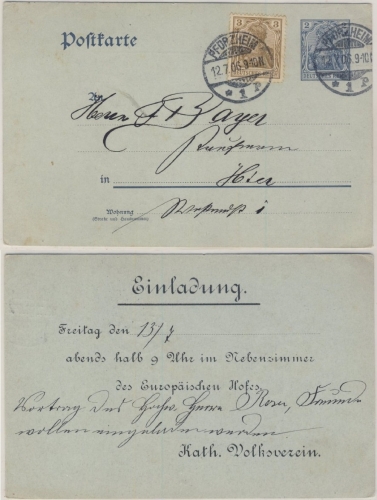 Postkarte
3
2
PFORZHEIM
12.7.06. 9-10N
* 1 P
PFORZHEIM
12.7.06. 9-10N
* 1 P
An
Herrn F Bayer
Kaufmann
in Hier
Wohnung
(Straße und Hausnummer)
1
Einladung.
Freitag den 13/7
abends halb 9 Uhr im Nebenzimmer
des Europäischen Hofes.
Vortrag des Hochw. Herrn Freunde
wollen eingeladen werden
Kath. Volksverein.